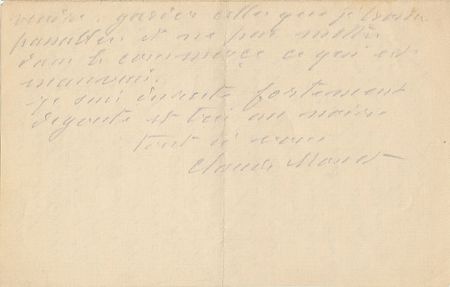 vendre. garder celles que je trouve
passables et ne pas mettre
dans le commerce ce qui est
mauvais.
Je suis ensuite fortement
dégoûté et très au noir.
tout à vous
Claude Monet